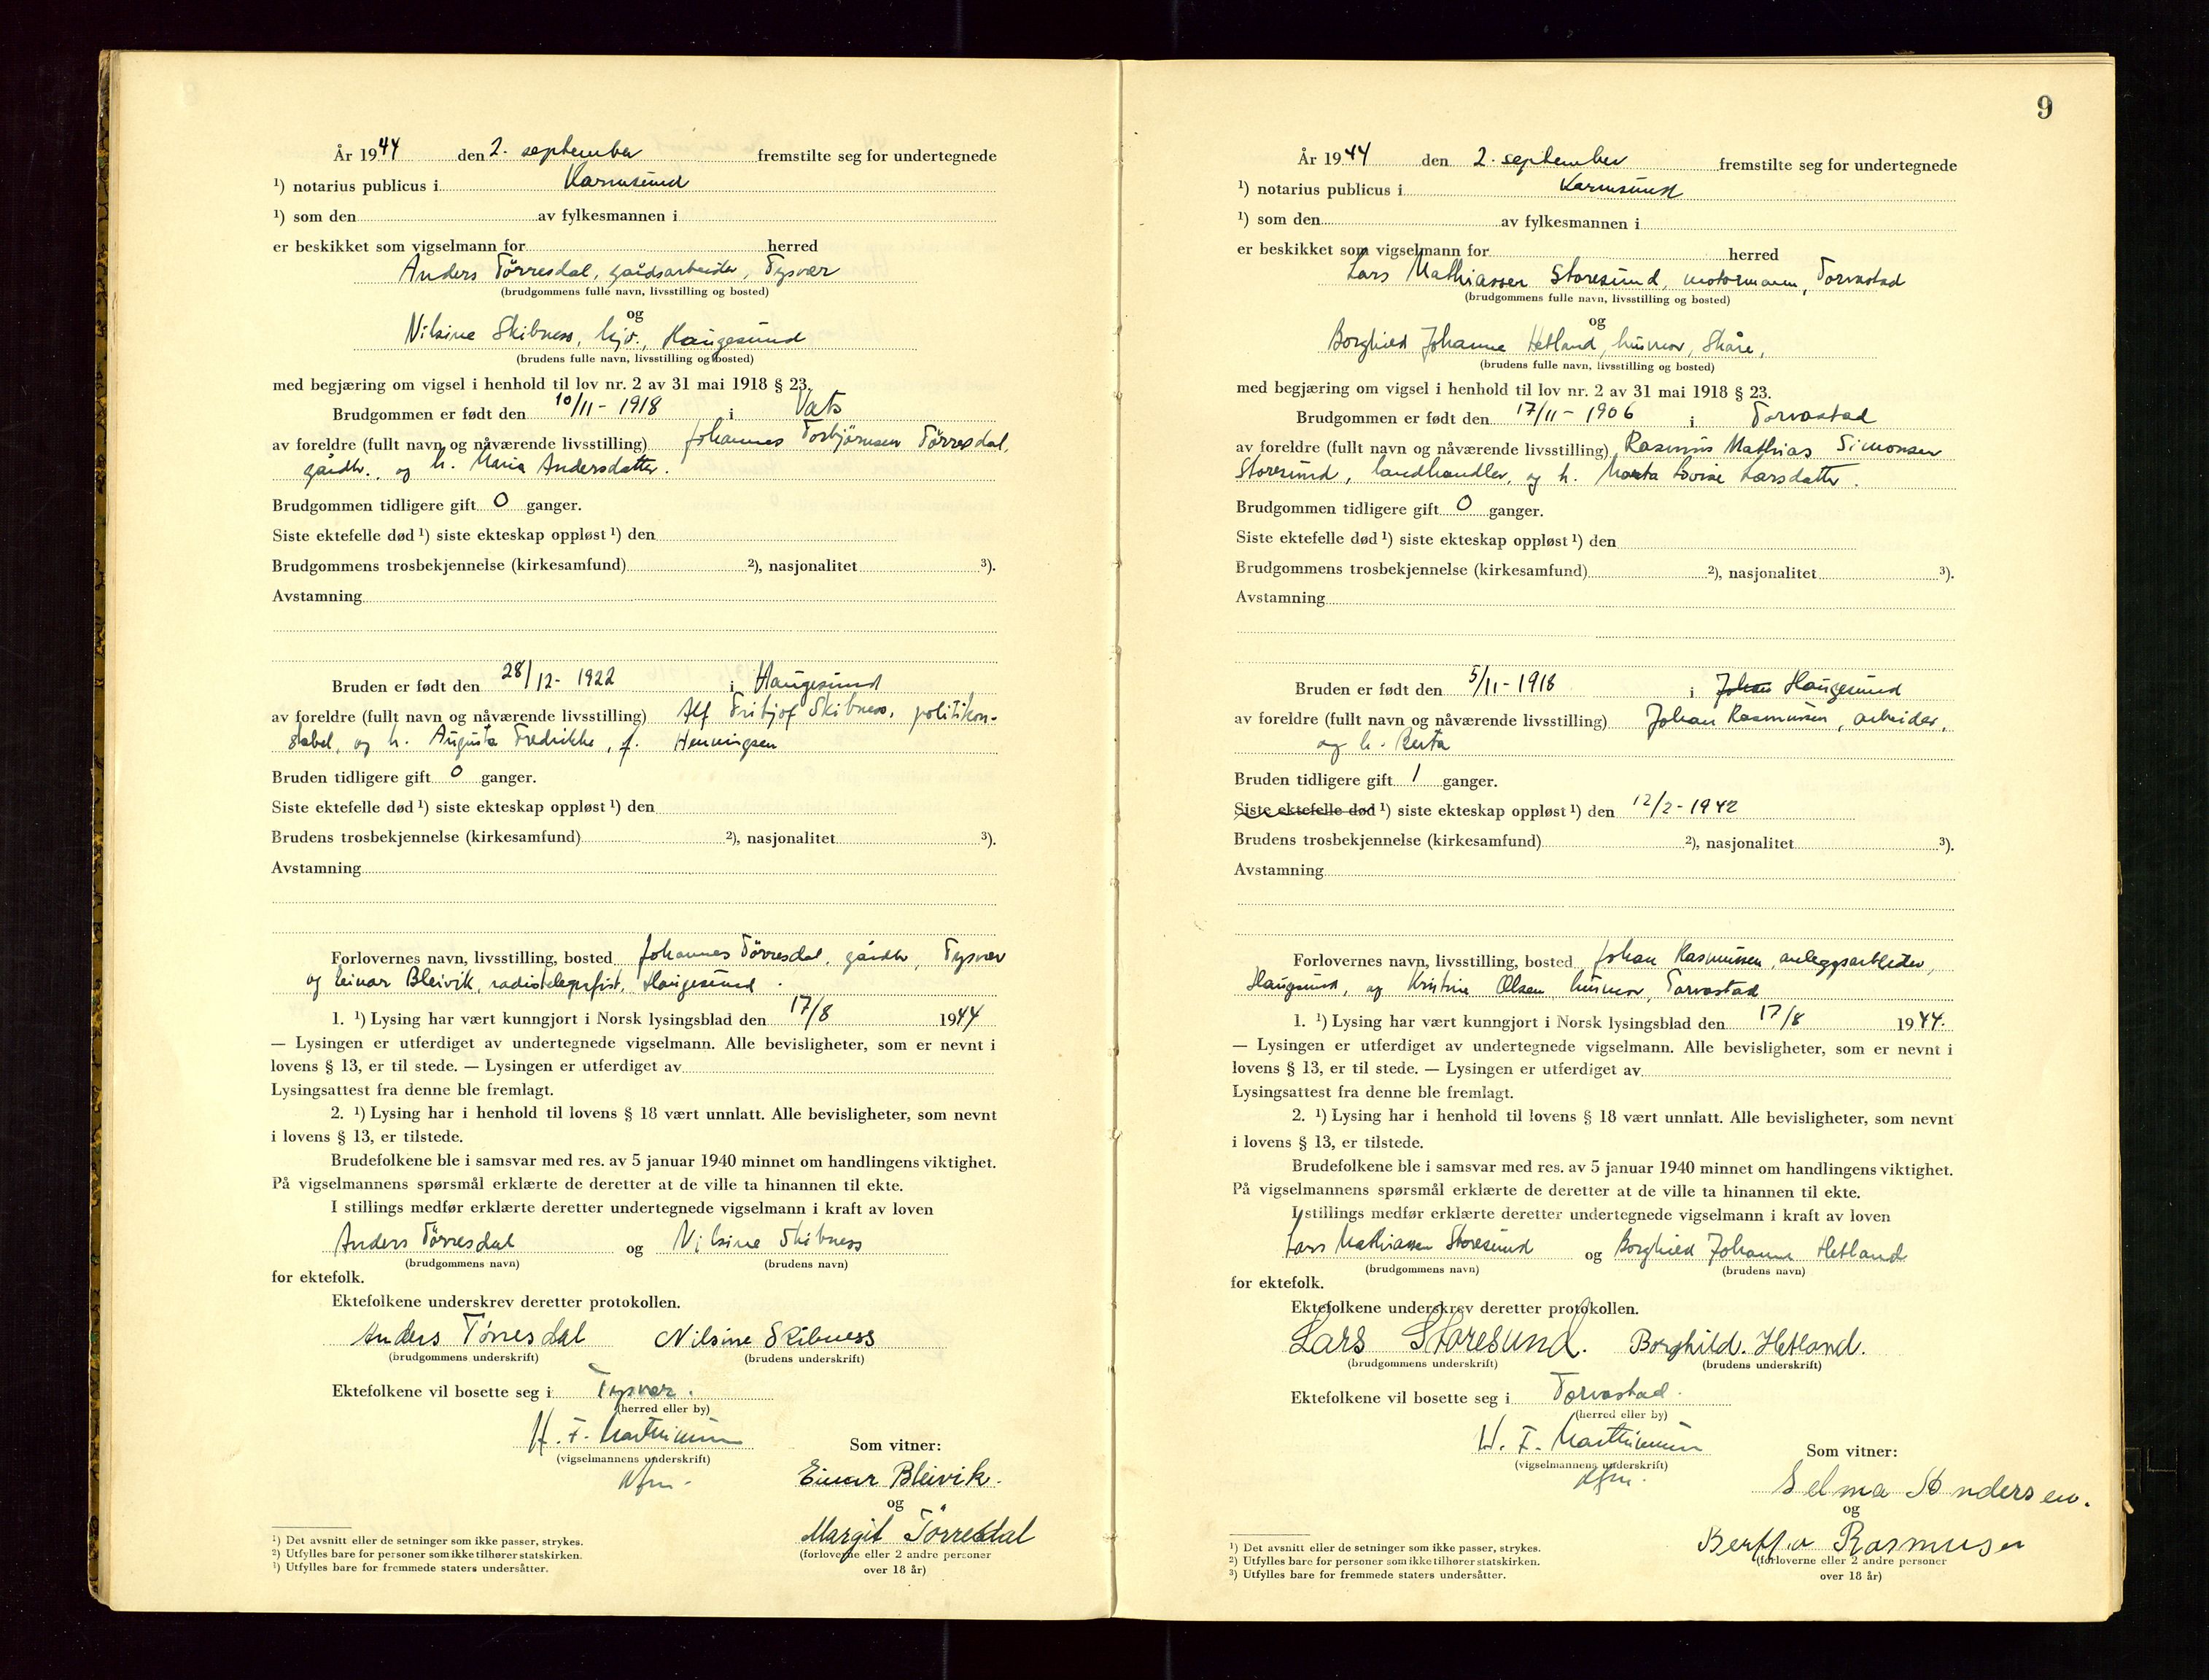 År 1944 den 2. september fremstilte seg for undertegnede
¹) notarius publicus i Karmsund
¹) som den av fylkesmannen i
er beskikket som vigselmann for herred
Anders Tørresdal, gårdsarbeider, Tysvær
(brudgommens fulle navn, livsstilling og bosted)
og
Nilsine Skibness, hjv., Haugesund
(brudens fulle navn, livsstilling og bosted)
med begjæring om vigsel i henhold til lov nr. 2 av 31 mai 1918 § 23.
Brudgommen er født den 10/11 - 1918 i Vats
av foreldre (fullt navn og nåværende livsstilling) Johannes Torbjørnsen Tørresdal,
gårdbr. og h. Maria Andersdatter.
Brudgommen tidligere gift 0 ganger.
Siste ektefelle død ¹) siste ekteskap oppløst ¹) den
Brudgommens trosbekjennelse (kirkesamfund) ²), nasjonalitet ³).
Avstamning
Bruden er født den 28/12 - 1922 i Haugesund
av foreldre (fullt navn og nåværende livsstilling) Alf Fritjof Skibness, politikon-
stabel, og h. Augusta Fredrikke, f. Henningsen
Bruden tidligere gift 0 ganger.
Siste ektefelle død ¹) siste ekteskap oppløst ¹) den
Brudens trosbekjennelse (kirkesamfund) ²), nasjonalitet ³).
Avstamning
Forlovernes navn, livsstilling, bosted Johannes Tørresdal, gårdbr, Tysvær
og Einar Bleivik, radiotelegrafist, Haugesund.
1. ¹) Lysing har vært kunngjort i Norsk lysingsblad den 17/8 1944
— Lysingen er utferdiget av undertegnede vigselmann. Alle bevisligheter, som er nevnt i
lovens § 13, er til stede. — Lysingen er utferdiget av
Lysingsattest fra denne ble fremlagt.
2. ¹) Lysing har i henhold til lovens § 18 vært unnlatt. Alle bevisligheter, som nevnt
i lovens § 13, er tilstede.
Brudefolkene ble i samsvar med res. av 5 januar 1940 minnet om handlingens viktighet.
På vigselmannens spørsmål erklærte de deretter at de ville ta hinannen til ekte.
I stillings medfør erklærte deretter undertegnede vigselmann i kraft av loven
Anders Tørresdal og Nilsine Skibness
(brudgommens navn) (brudens navn)
for ektefolk.
Ektefolkene underskrev deretter protokollen.
Anders Tørresdal Nilsine Skibness
(brudgommens underskrift) (brudens underskrift)
Ektefolkene vil bosette seg i Tysvær.
(herred eller by)
H. F. Marthinussen
(vigselmannens underskrift)
Som vitner:
Einar Bleivik.
og
Margit Tørresdal
(forloverne eller 2 andre personer
over 18 år)
¹) Det avsnitt eller de setninger som ikke passer, strykes.
²) Utfylles bare for personer som ikke tilhører statskirken.
¹) Utfylles bare for fremmede staters undersåtter.
9
År 1944 den 2. september fremstilte seg for undertegnede
¹) notarius publicus i Karmsund
¹) som den av fylkesmannen i
er beskikket som vigselmann for herred
Lars Mathiassen Storesund, motormann, Torvastad
(brudgommens fulle navn, livsstilling og bosted)
og
Borghild Johanne Hetland, husmor, Skåre,
(brudens fulle navn, livsstilling og bosted)
med begjæring om vigsel i henhold til lov nr. 2 av 31 mai 1918 § 23.
Brudgommen er født den 17/11 - 1906 i Torvastad
av foreldre (fullt navn og nåværende livsstilling) Rasmus Mathias Simonsen
Storesund, landhandler, og h. Marta Lovise Larsdatter.
Brudgommen tidligere gift 0 ganger.
Siste ektefelle død ¹) siste ekteskap oppløst ¹) den
Brudgommens trosbekjennelse (kirkesamfund) ²), nasjonalitet ³).
Avstamning
Bruden er født den 5/11 - 1918 i Johan Haugesund
av foreldre (fullt navn og nåværende livsstilling) Johan Rasmussen, arbeider,
og h. Berta
Bruden tidligere gift 1 ganger.
Siste ektefelle død ¹) siste ekteskap oppløst ¹) den 12/2 - 1942
Brudens trosbekjennelse (kirkesamfund) ²), nasjonalitet ³).
Avstamning
Forlovernes navn, livsstilling, bosted Johan Rasmussen, anleggsarbeider,
Haugesund, og Kristine Olsen, husmor, Torvastad
1. ¹) Lysing har vært kunngjort i Norsk lysingsblad den 17/8 1944.
— Lysingen er utferdiget av undertegnede vigselmann. Alle bevisligheter, som er nevnt i
lovens § 13, er til stede. — Lysingen er utferdiget av
Lysingsattest fra denne ble fremlagt.
2. ¹) Lysing har i henhold til lovens § 18 vært unnlatt. Alle bevisligheter, som nevnt
i lovens § 13, er tilstede.
Brudefolkene ble i samsvar med res. av 5 januar 1940 minnet om handlingens viktighet.
På vigselmannens spørsmål erklærte de deretter at de ville ta hinannen til ekte.
I stillings medfør erklærte deretter undertegnede vigselmann i kraft av loven
Lars Mathiassen Storesund og Borghild Johanne Hetland
(brudgommens navn) (brudens navn)
for ektefolk.
Ektefolkene underskrev deretter protokollen.
Lars Storesund. Borghild. Hetland.
(brudgommens underskrift) (brudens underskrift)
Ektefolkene vil bosette seg i Torvastad.
(herred eller by)
H. F. Marthinussen
(vigselmannens underskrift)
Som vitner:
Selma Andersen.
og
Bertha Rasmussen
(forloverne eller 2 andre personer
over 18 år)
¹) Det avsnitt eller de setninger som ikke passer, strykes.
²) Utfylles bare for personer som ikke tilhører statskirken.
³) Utfylles bare for fremmede staters undersåtter.